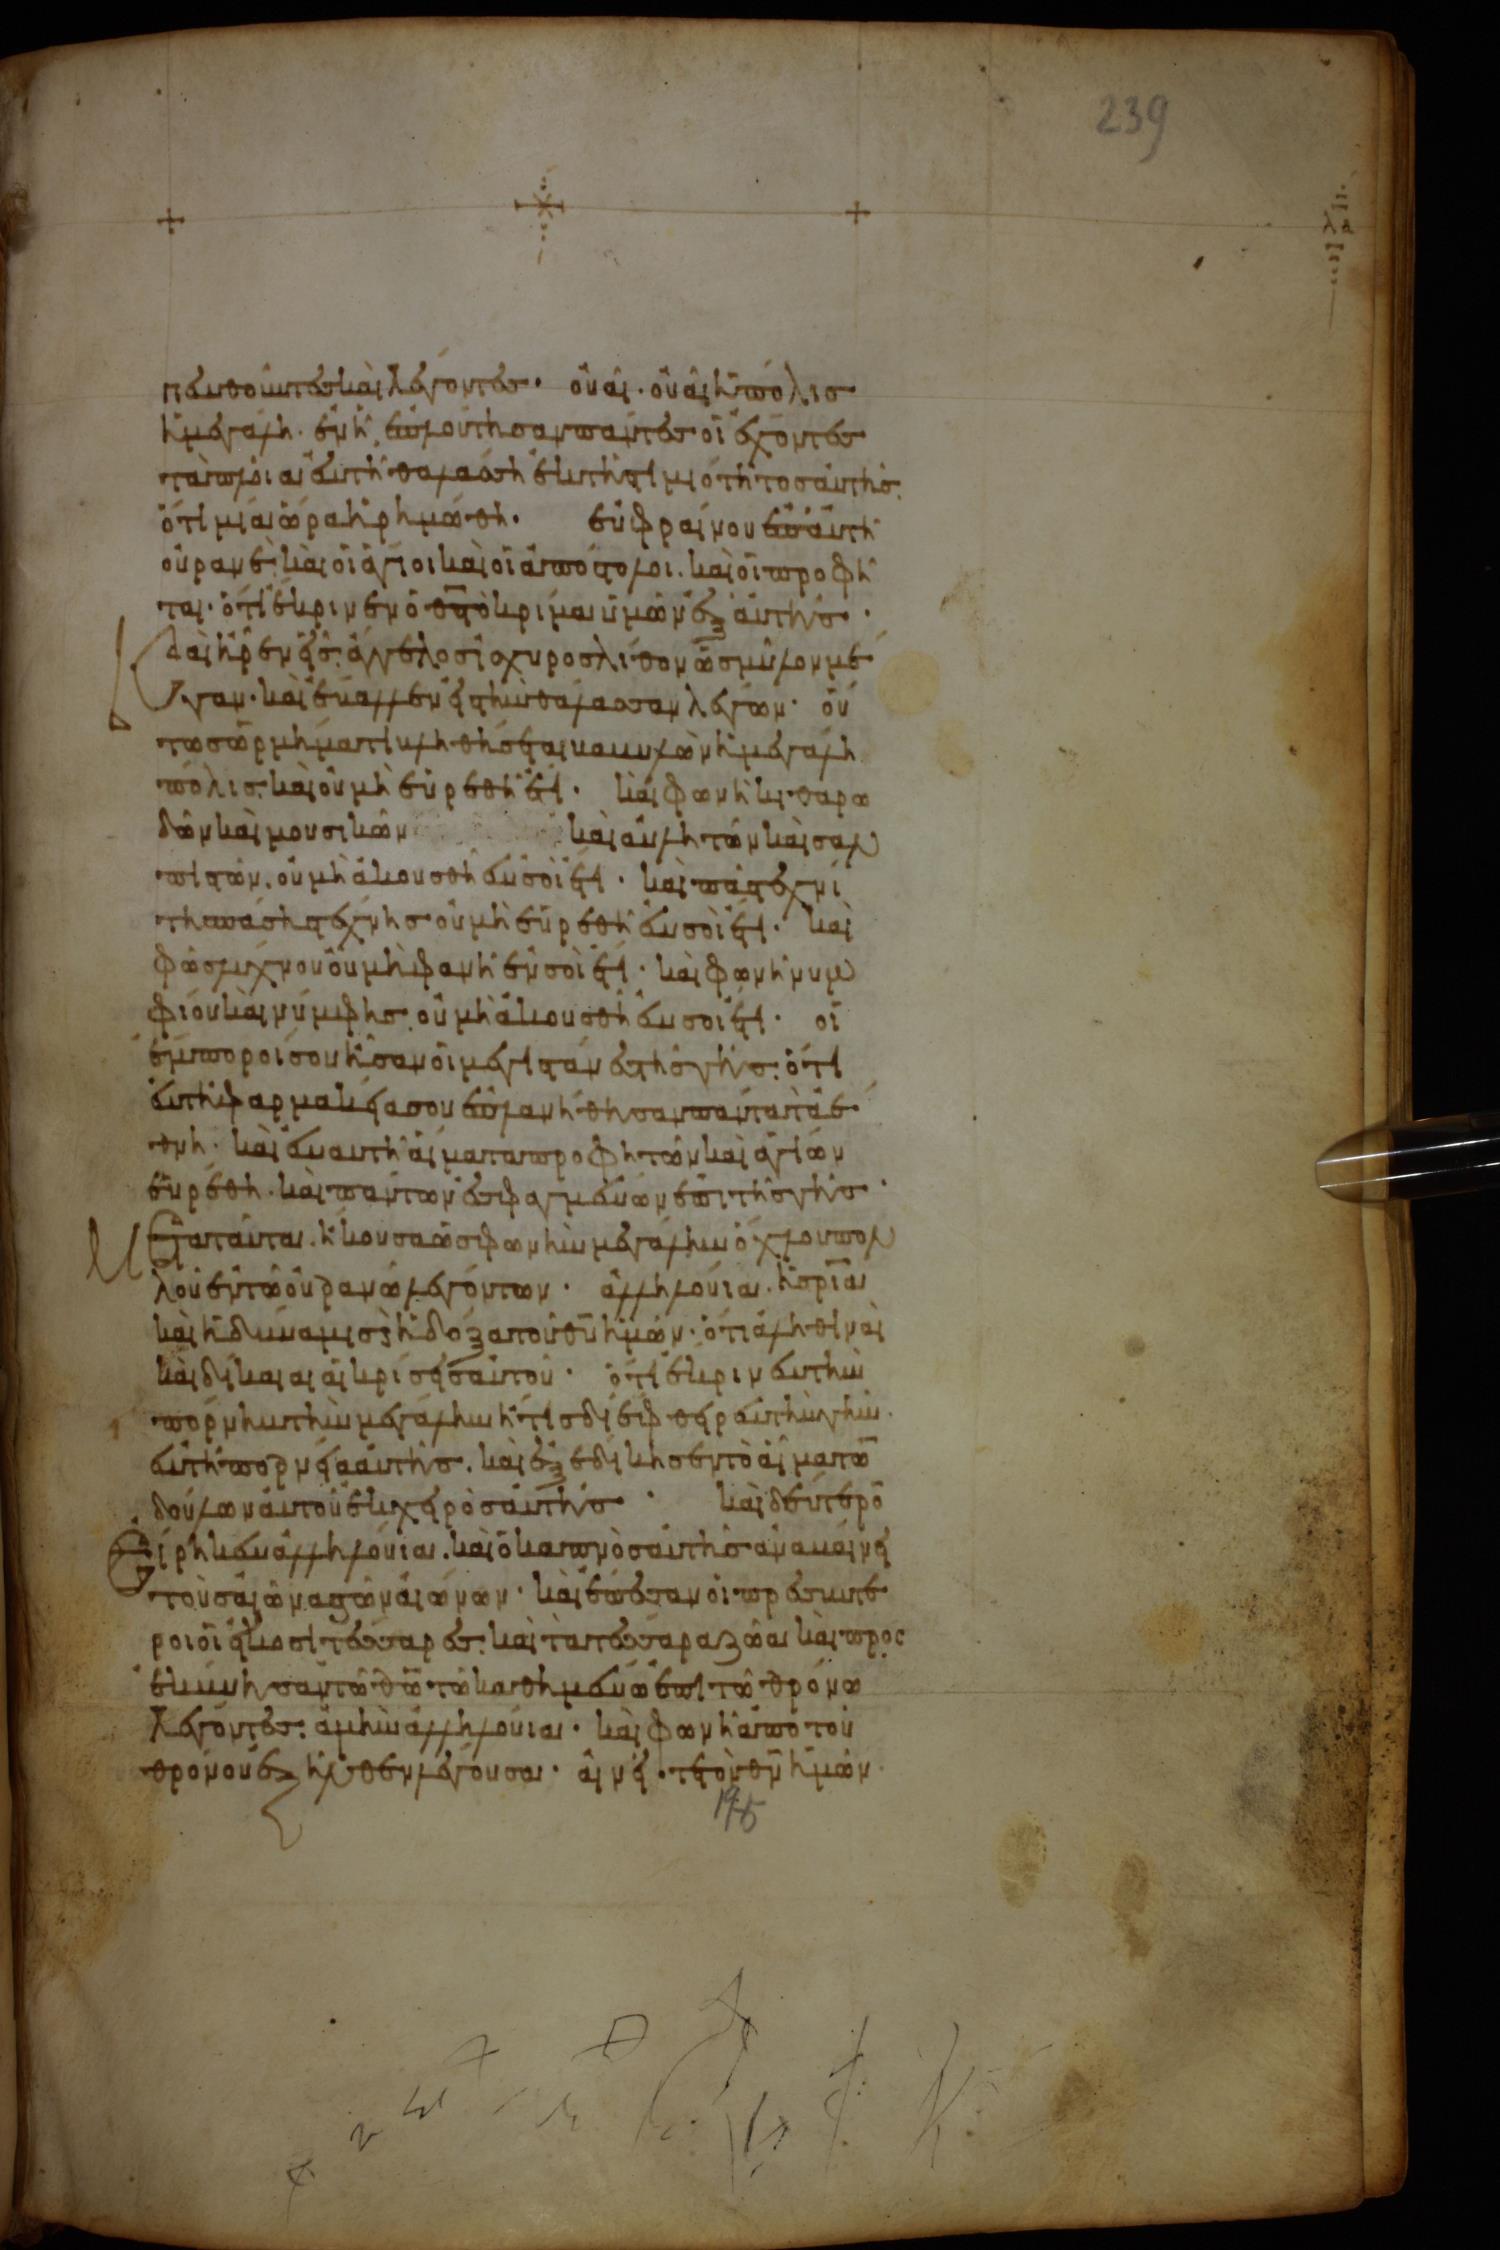 239
λα
πενθοῦντες καὶ λέγοντες· οὐαὶ· οὐαὶ ἡ πόλισ
ἡ μεγάλη· ἐν ἧ ἐπλούτησαν πάντες οἱ ἔχοντες
τὰ πλοῖα ἐν τῆ θαλάσση ἐκ τῆς τιμιότητος αὐτῆς·
ὅτι μία ὥρα ἠρημώθη· εὐφραίνου ἐπ αὐτῆ
οὐρανέ· καὶ οἱ ἅγιοι καὶ οἱ ἀπόστολοι· καὶ οἱ προφῆ
ται· ὅτι ἔκρινεν ὁ θσ τὸ κρίμα ὑμῶν ἐξ αὐτῆς·
Και ἦρεν εἷς ἄγγελος ἰσχυρος λίθον ὡς μύλον μέ
γαν· καὶ ἔβαλλεν εἰς τὴν θάλασσαν λέγων· οὕ
τως ὁρμήματι βληθήσεται βαβυλὼν ἡ μεγάλη
πόλις· καὶ οὐ μὴ εὑρεθῆ ἔτι· καὶ φωνὴ κιθαρω
δῶν καὶ μουσικῶν καὶ αὐλητῶν καὶ σαλ
πιστῶν· οὐ μὴ ἀκουσθῆ ἐν σοὶ ἔτι· καὶ πᾶς τεχνί
της πάσης τέχνης οὐ μὴ εὑρεθῆ ἐν σοὶ ἔτι· καὶ
φῶς λύχνου οὐ μὴ φανῆ ἐν σοὶ ἔτι· καὶ φωνὴ νυμ
φίου καὶ νύμφης οὐ μὴ ἀκουσθῆ ἐν σοὶ ἔτι· οἱ
ἔμποροι σου ἦσαν οἱ μεγιστάνες τῆς γῆς· ὅτι
ἐν τῆ φαρμακεία σου ἐπλανήθησαν πάντα τὰ ἔ
θνη· καὶ ἐν αυτῆ αἵματα προφητῶν καὶ ἁγίων
εὑρέθη· καὶ πάντων ἐσφαγμένων ἐπὶ τῆς γῆς·
Μετα ταῦτα· ἤκουσα ὡς φωνὴν μεγάλην ὄχλου πολ
λοῦ ἐν τῶ οὐρανῶ λεγόντων· ἀλληλούια· ἡ σρία
καὶ ἡ δύναμις καὶ ἡ δόξα τοῦ θυ ἡμῶν· ὅτι ἀληθιναὶ
καὶ δίκαιαι αἱ κρίσεις αὐτοῦ· ὅτι ἔκρινεν τὴν
πόρνην τὴν μεγάλην ἥτις διέφθειρεν τὴν γῆν·
ἐν τῆ πορνεία αὐτῆς· καὶ ἐξεδίκησεν τὸ αἷμα τῶ
δούλων αὐτοῦ ἐκ χειρὸς αὐτῆς· καὶ δεύτερο
Εἴρηκεν ἀλληλούια· καὶ ὁ καπνὸς αὐτῆς ἀναβαίνει
εἰς τοὺς αἰῶνας τῶν αἰώνων· καὶ ἔπεσαν οἱ πρεσβύτε
ροι οἱ εἴκοσι τέσσαρες· καὶ τὰ τέσσαρα ζῶα καὶ προς
εκύνησαν τῶ θω τῶ καθημένω ἐπὶ τῶ θρόνω
λέγοντες· ἀμὴν ἀλληλούια· καὶ φωνὴ ἀπὸ τοῦ
θρόνου ἐξῆλθεν λέγουσα· αἰνεῖτε τὸν θν ἡμῶν·